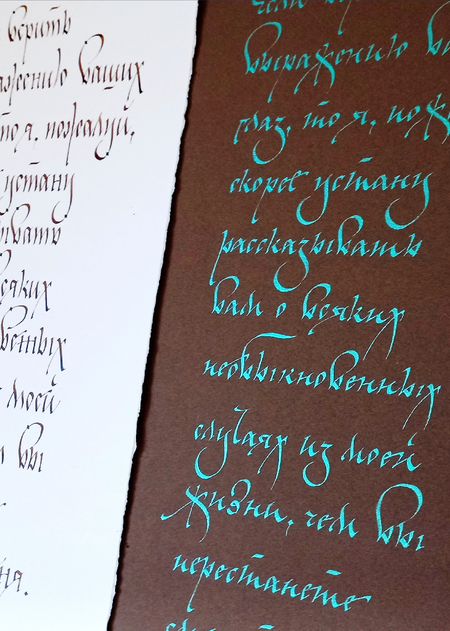 верить
ажению ваших
то я, пожалуй,
устану
ывать
сяких
венных
моей
вы
ня.
чем
выражению ва
глаз, то я, пож
скорее устану
рассказывать
вам о всяких
необыкновенных
случаях из моей
жизни, чем вы
перестанете